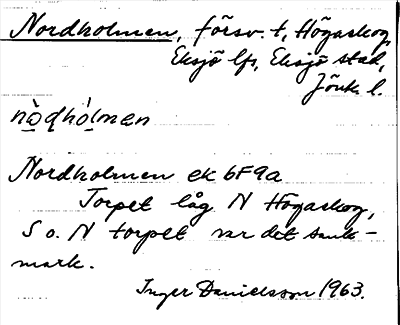 Nordholmen, försv. t, Högaskog,
Eksjö lfs, Eksjö stad,
Jönk. l.
nòḍhólmen
Nordholmen ek 6F9a
Torpet låg N Högaskog,
S o. N torpet var det sank-
mark.
Inger Danielsson 1963.